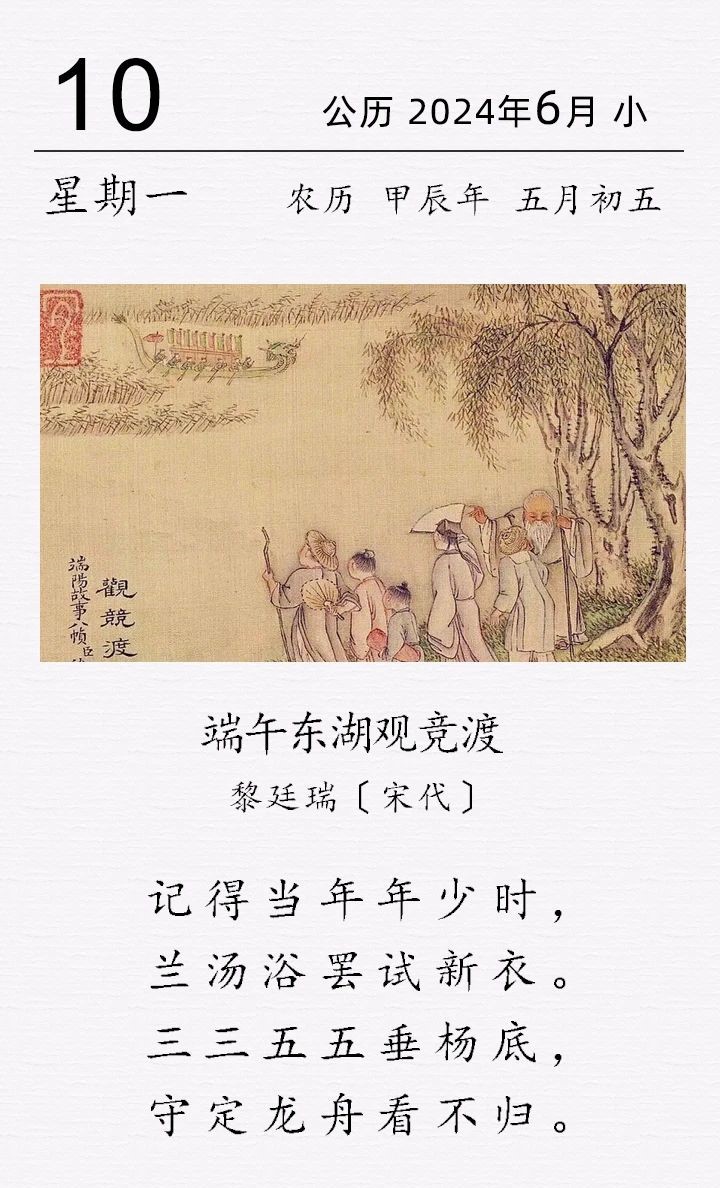 10
公历 2024年6月 小
星期一
农历 甲辰年 五月初五
觀競渡
端陽故事八幀臣
端午东湖观竞渡
黎廷瑞〔宋代〕
记得当年年少时，
兰汤浴罢试新衣。
三三五五垂杨底，
守定龙舟看不归。